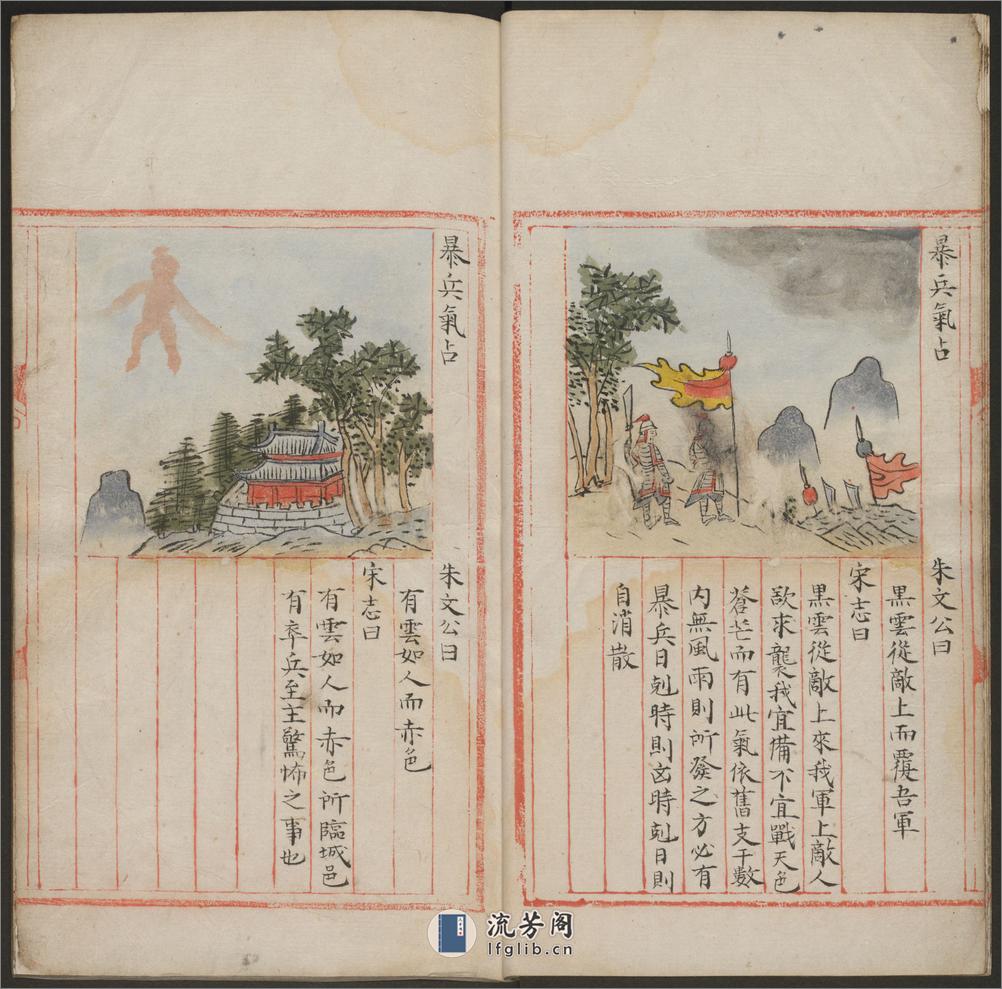 暴兵氣占
朱文公曰
黑雲從敵上而覆吾軍
宋志曰
黑雲從敵上來我軍上敵人
欲求襲我宜備不宜戰天色
蒼芒而有此氣依舊支干數
内無風雨則所發之方必有
暴兵日剋時則凶時剋日則
自消散
暴兵氣占
朱文公曰
有雲如人而赤色
宋志曰
有雲如人而赤色所臨城邑
有卒兵至主驚怖之事也
流芳阁
lfglib.cn